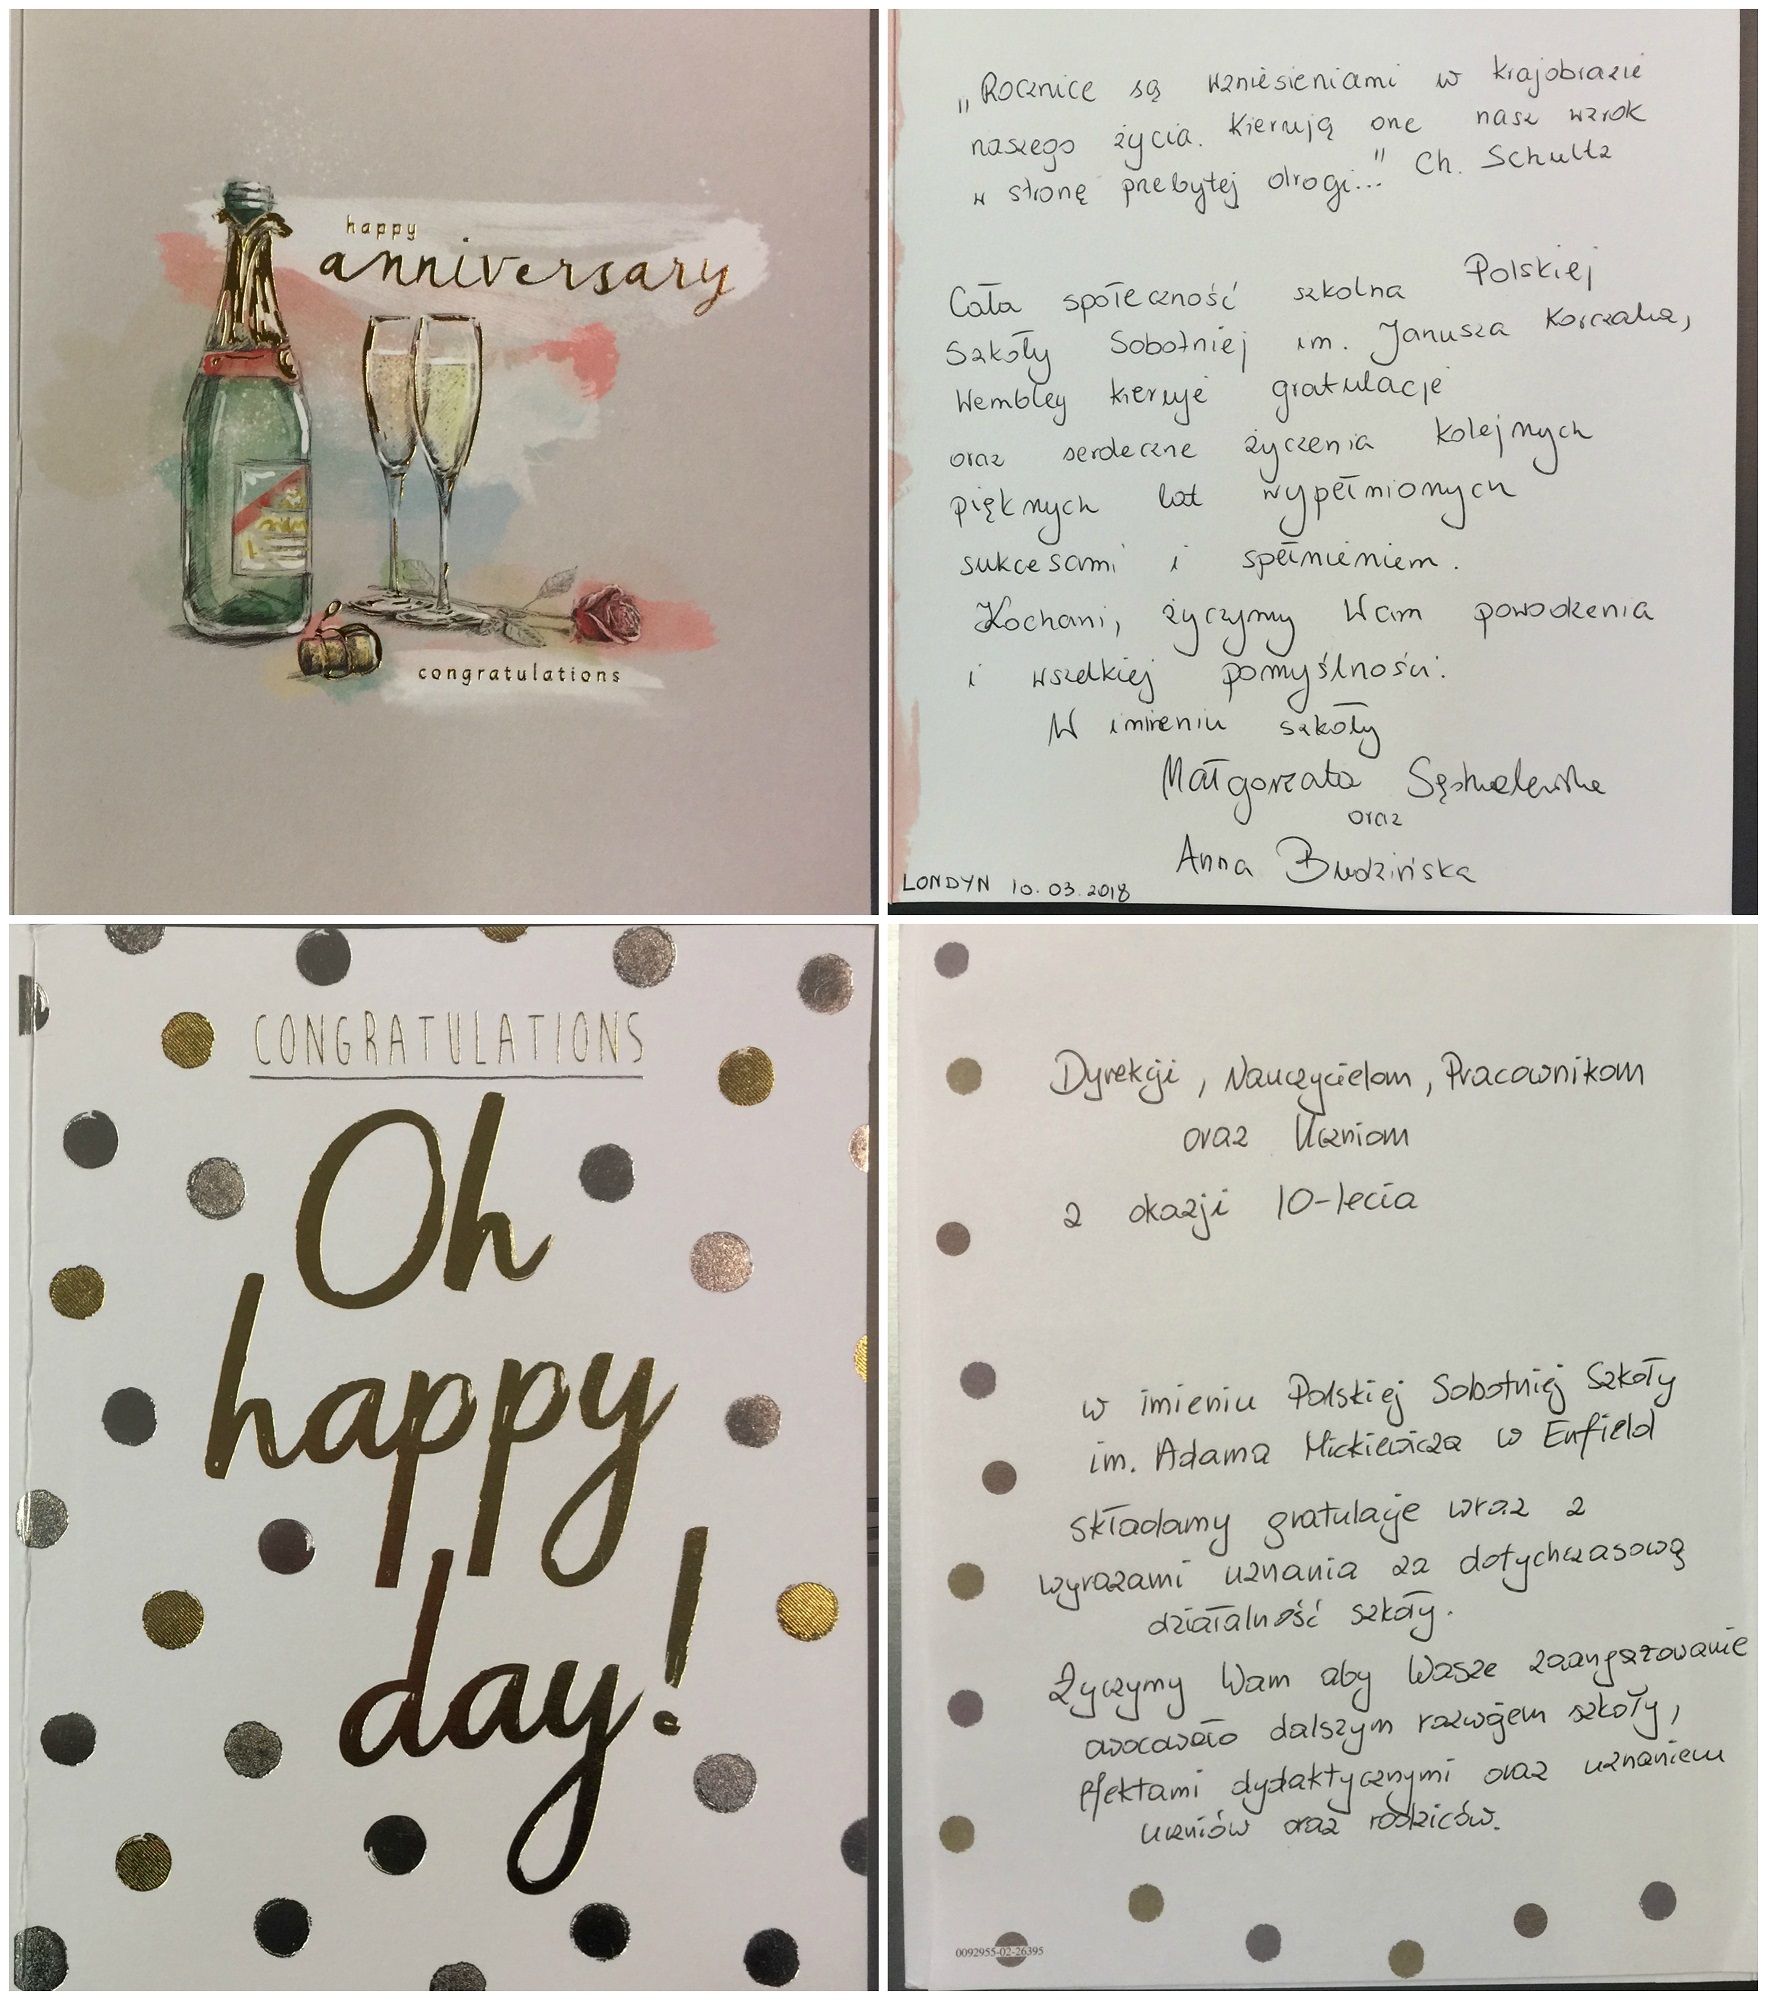 happy
anniversary
congratulations
„Rocznice są wzniesieniami w krajobrazie
naszego życia. Kierują one nasz wzrok
w stronę przebytej drogi..." Ch. Schultz
Cała społeczność szkolna Polskiej
Szkoły Sobotniej im. Janusza Korczaka,
Wembley kieruje gratulacje
oraz serdeczne życzenia kolejnych
pięknych lat wypełnionych
sukcesami i spełnieniem.
Kochani, życzymy Wam powodzenia
i wszelkiej pomyślności.
W imieniu szkoły
Małgorzata
oraz
Anna Budzińska
LONDYN 10.03.2018
CONGRATULATIONS
Oh
happy
day!
Dyrekcji, Nauczycielom, Pracownikom
oraz Uczniom
z okazji 10-lecia
w imieniu Polskiej Sobotniej Szkoły
im. Adama Mickiewicza w Enfield
składamy gratulacje wraz z
wyrazami uznania za dotychczasową
działalność szkoły.
Życzymy Wam aby Wasze zaangażowanie
owocowało dalszym rozwojem szkoły,
efektami dydaktycznymi oraz uznaniem
uczniów oraz rodziców.
0092955-02-26395